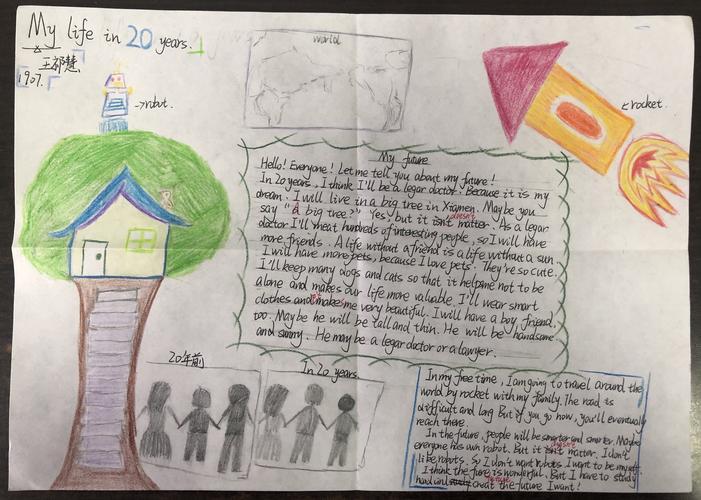 My life in 20 years.
王祁慧
1907.
→robot.
world
←rocket.
My future
Hello! Everyone! Let me tell you about my future!
In 20 years, I think I'll be a legar doctor. Because it is my
dream. I will live in a big tree in Xiamen. Maybe you
say "a big tree?" Yes, but it doesn't matter. As a legar
doctor I'll meat hundreds of interesting people, so I will have
more friends. A life without a friend is a life without a sun.
I will have more pets, because I love pets. They're so cute.
I'll keep many dogs and cats so that it helpme not to be
along and makes our life more valuable. I'll wear smart
clothes and makes me very beautiful. I will have a boy friend,
too. Maybe he will be tall and thin. He will be handsome
and sunny. He may be a legar doctor or a lawyer.
20年前
In 20 years.
In my free time, I am going to travel around the
world by rocket with my family. The road is
difficult and long But if you go now, you'll eventualy
reach there.
In the future, people will be smarter and smarter. Maybe
everyone has uwn robot. But it doesn't matter. I don't
like robots. So I don't want robots. I want to be myself.
I think the fure is wonderful. But I have to study
hard and creat the future I want!